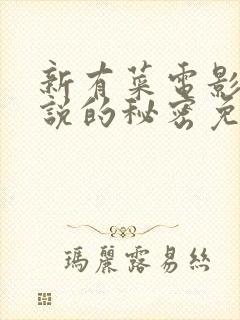 新有菜電影
說的秘密免
瑪麗露易絲